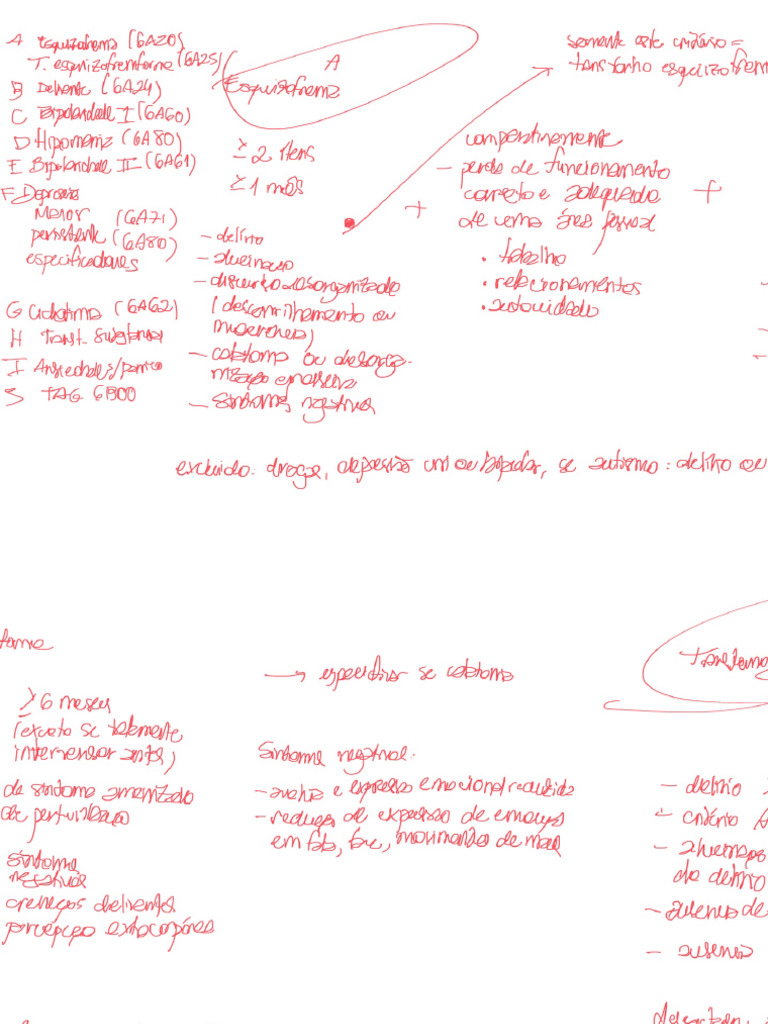 A Esquizofrenia (6A20)
T. esquizofreniforme (6A25)
B Delirante (6A24)
C Bipolaridade I (6A60)
D Hipomania (6A80)
E Bipolaridade II (6A61)
F Depressão
Menor (6A71)
persistente (6A80)
especificadores
G Ciclotimia (6A62)
H Transt. substância
I Ansiedades/panico
J TAG 6B00
A
Esquizofrenia
≥ 2 itens
≥ 1 mês
- delírio
- alucinação
- discurso desorganizado
(descarrilhamento ou
incoerência)
- catatonia ou desorga-
nização
- sintomas negativos
+
somente este critério =
transtorno esquizofren
concomitantemente
- perda de funcionamento
correto e adequado
de uma área pessoal
• trabalho
• relacionamentos
• autocuidado
+
excluido: droga, depressão uni ou bipolar, se autismo: delírio ou
≥ 6 meses
(exceto se
de sintoma
de perturbação
sintoma
negativo
crenças delirantes
percepção extracorpórea
→ especificar se catatonia
Sintoma negativo:
- avolia e expressão emocional reduzida
- redução de expressão de emoções
em fala, face, movimento de mão
- delírio
- critério A
- alucinação
do delírio
- ausência de
- ausência